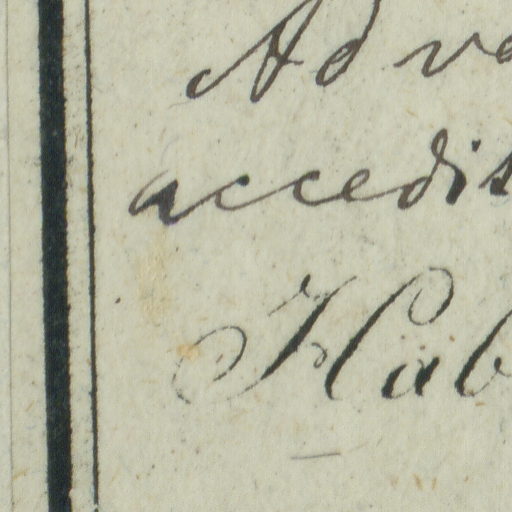 Ad ve
accedis
Hab